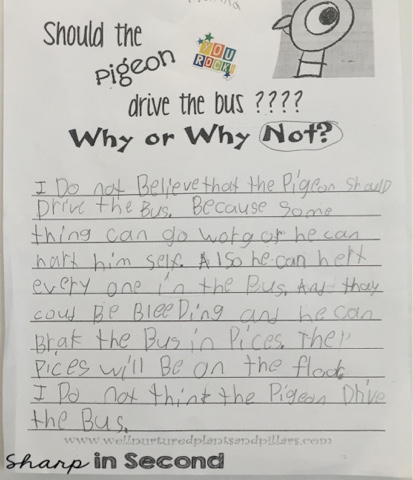 Should the
Pigeon
YOU
ROCK!
drive the bus ????
Why or Why Not?
I Do not Believe that the Pigeon Should
Drive the Bus. Because Some
thing can go worg or he can
hart him self. Also he can hert
every one in the Bus. And thay
coud Be BleeDing and he can
Brak the Bus in Pices. The
Pices will Be on the
I Do not think the Pigeon Drive
the Bus.
www.wellnurturedplantsandpillars.com
Sharp in Second